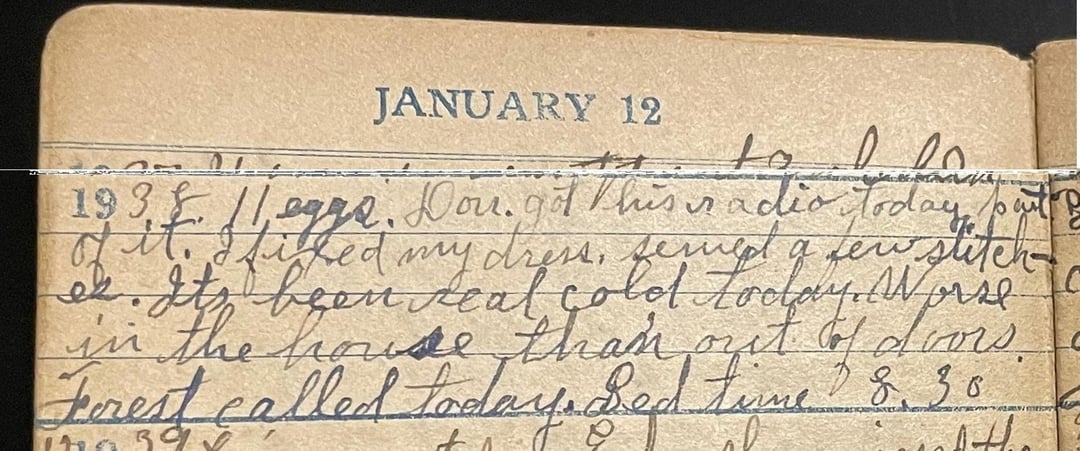 JANUARY 12
1938. 11 eggs. Don. got his radio today, part
of it. I fixed my dress. sewed a few stitch-
es. Its been real cold today. Worse
in the house than out of doors.
Forest called today. Bed time 8.30
1939